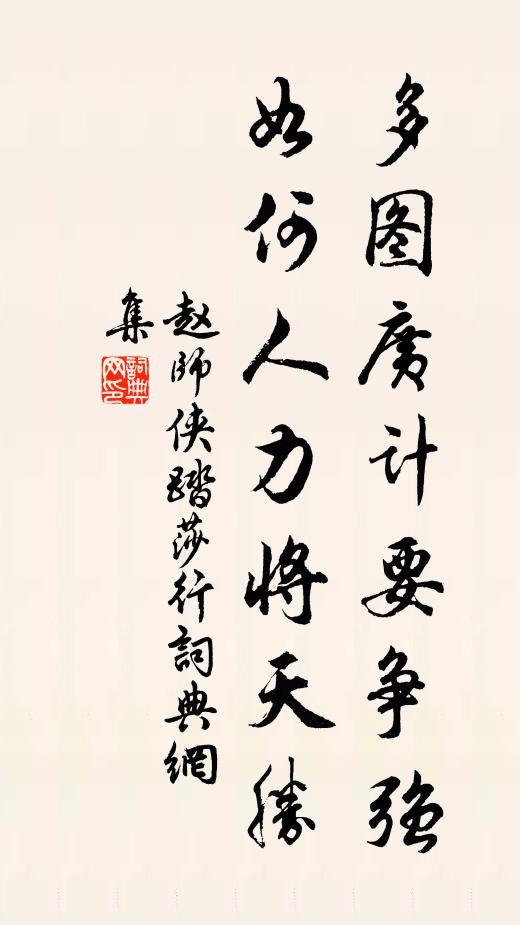 多图廣计要争强
如何人力将天勝
赵师侠踏莎行詞典網
集
詞典
网印